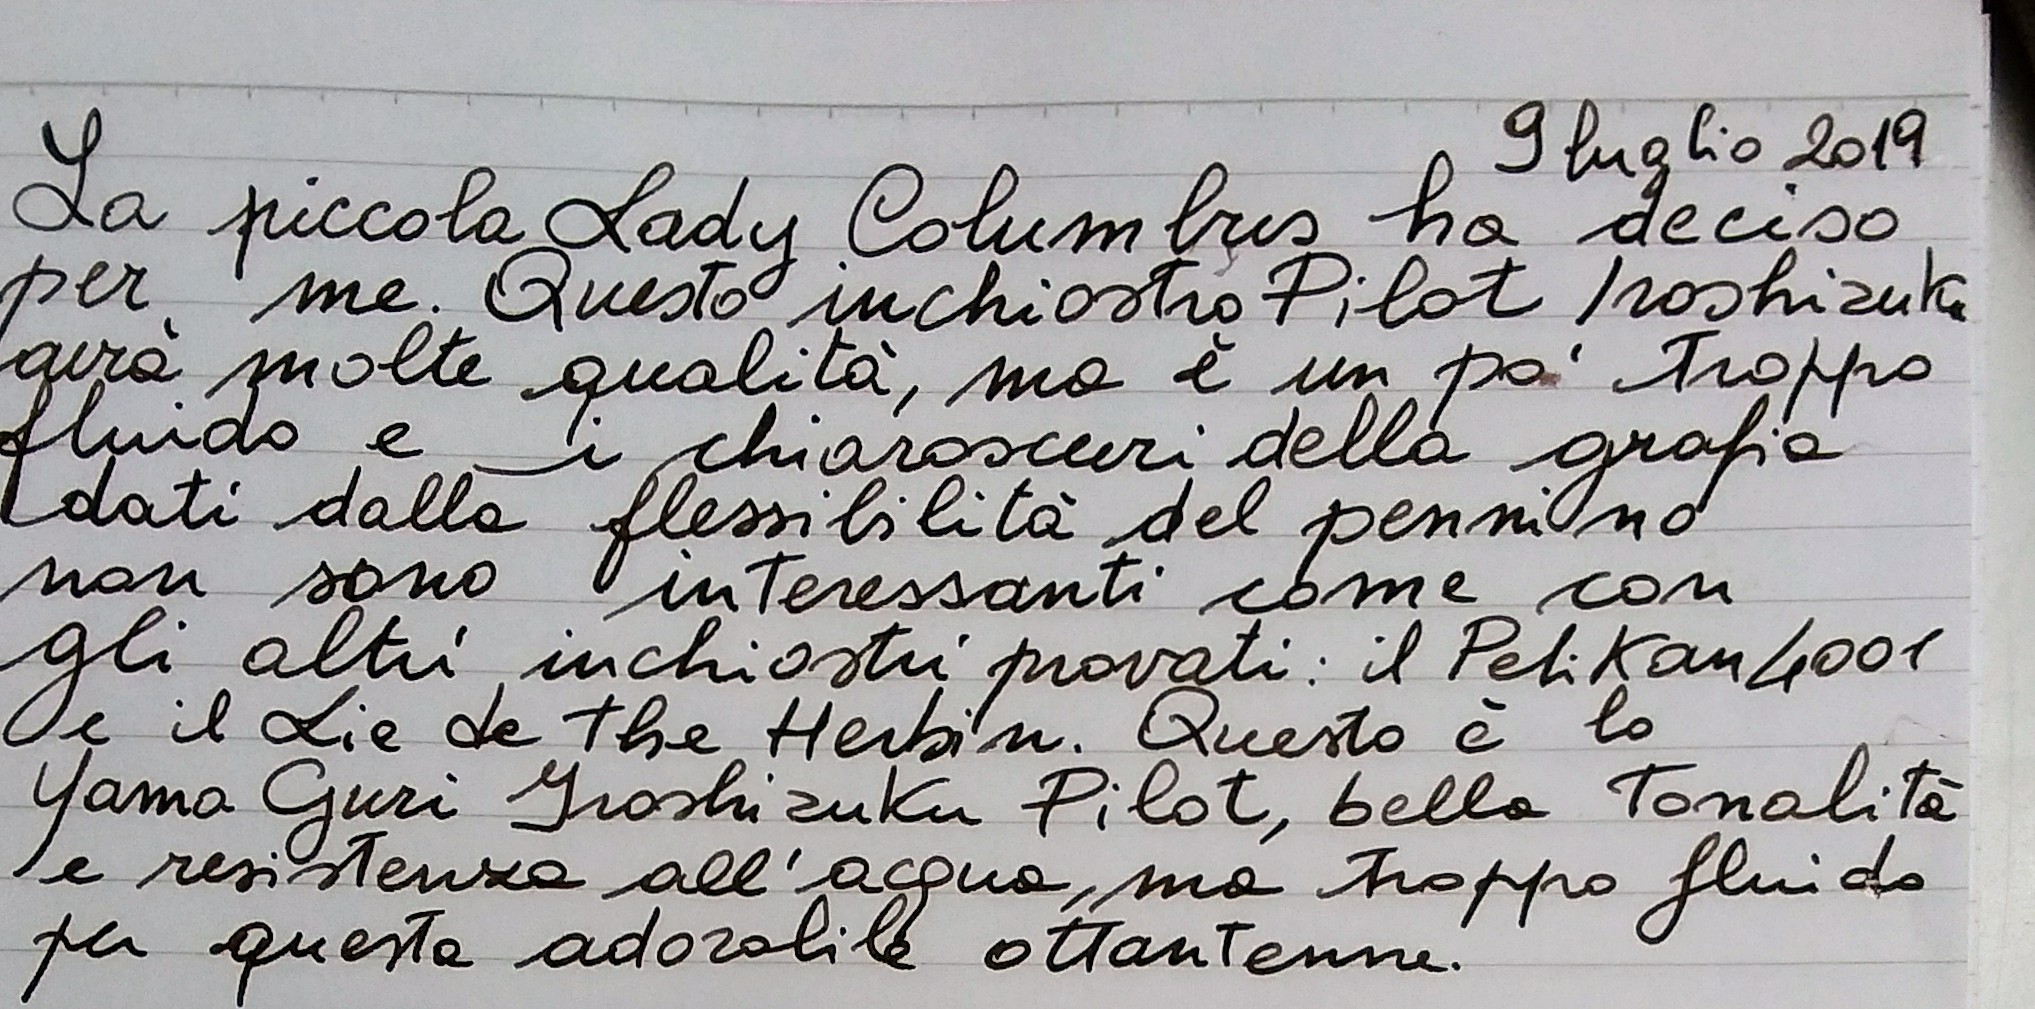 9 luglio 2019
La piccola Lady Columbus ha deciso
per me. Questo inchiostro Pilot Iroshizuku
avrà molte qualità, ma è un po' troppo
fluido e i chiaroscuri della grafia
dati dalla flessibilità del pennino
non sono interessanti come con
gli altri inchiostri provati: il Pelikan 4001
e il Lie de The Herbin. Questo è lo
Yama Guri Iroshizuku Pilot, bella tonalità
e resistenza all'acqua, ma troppo fluido
per questa adorabile ottantenne.